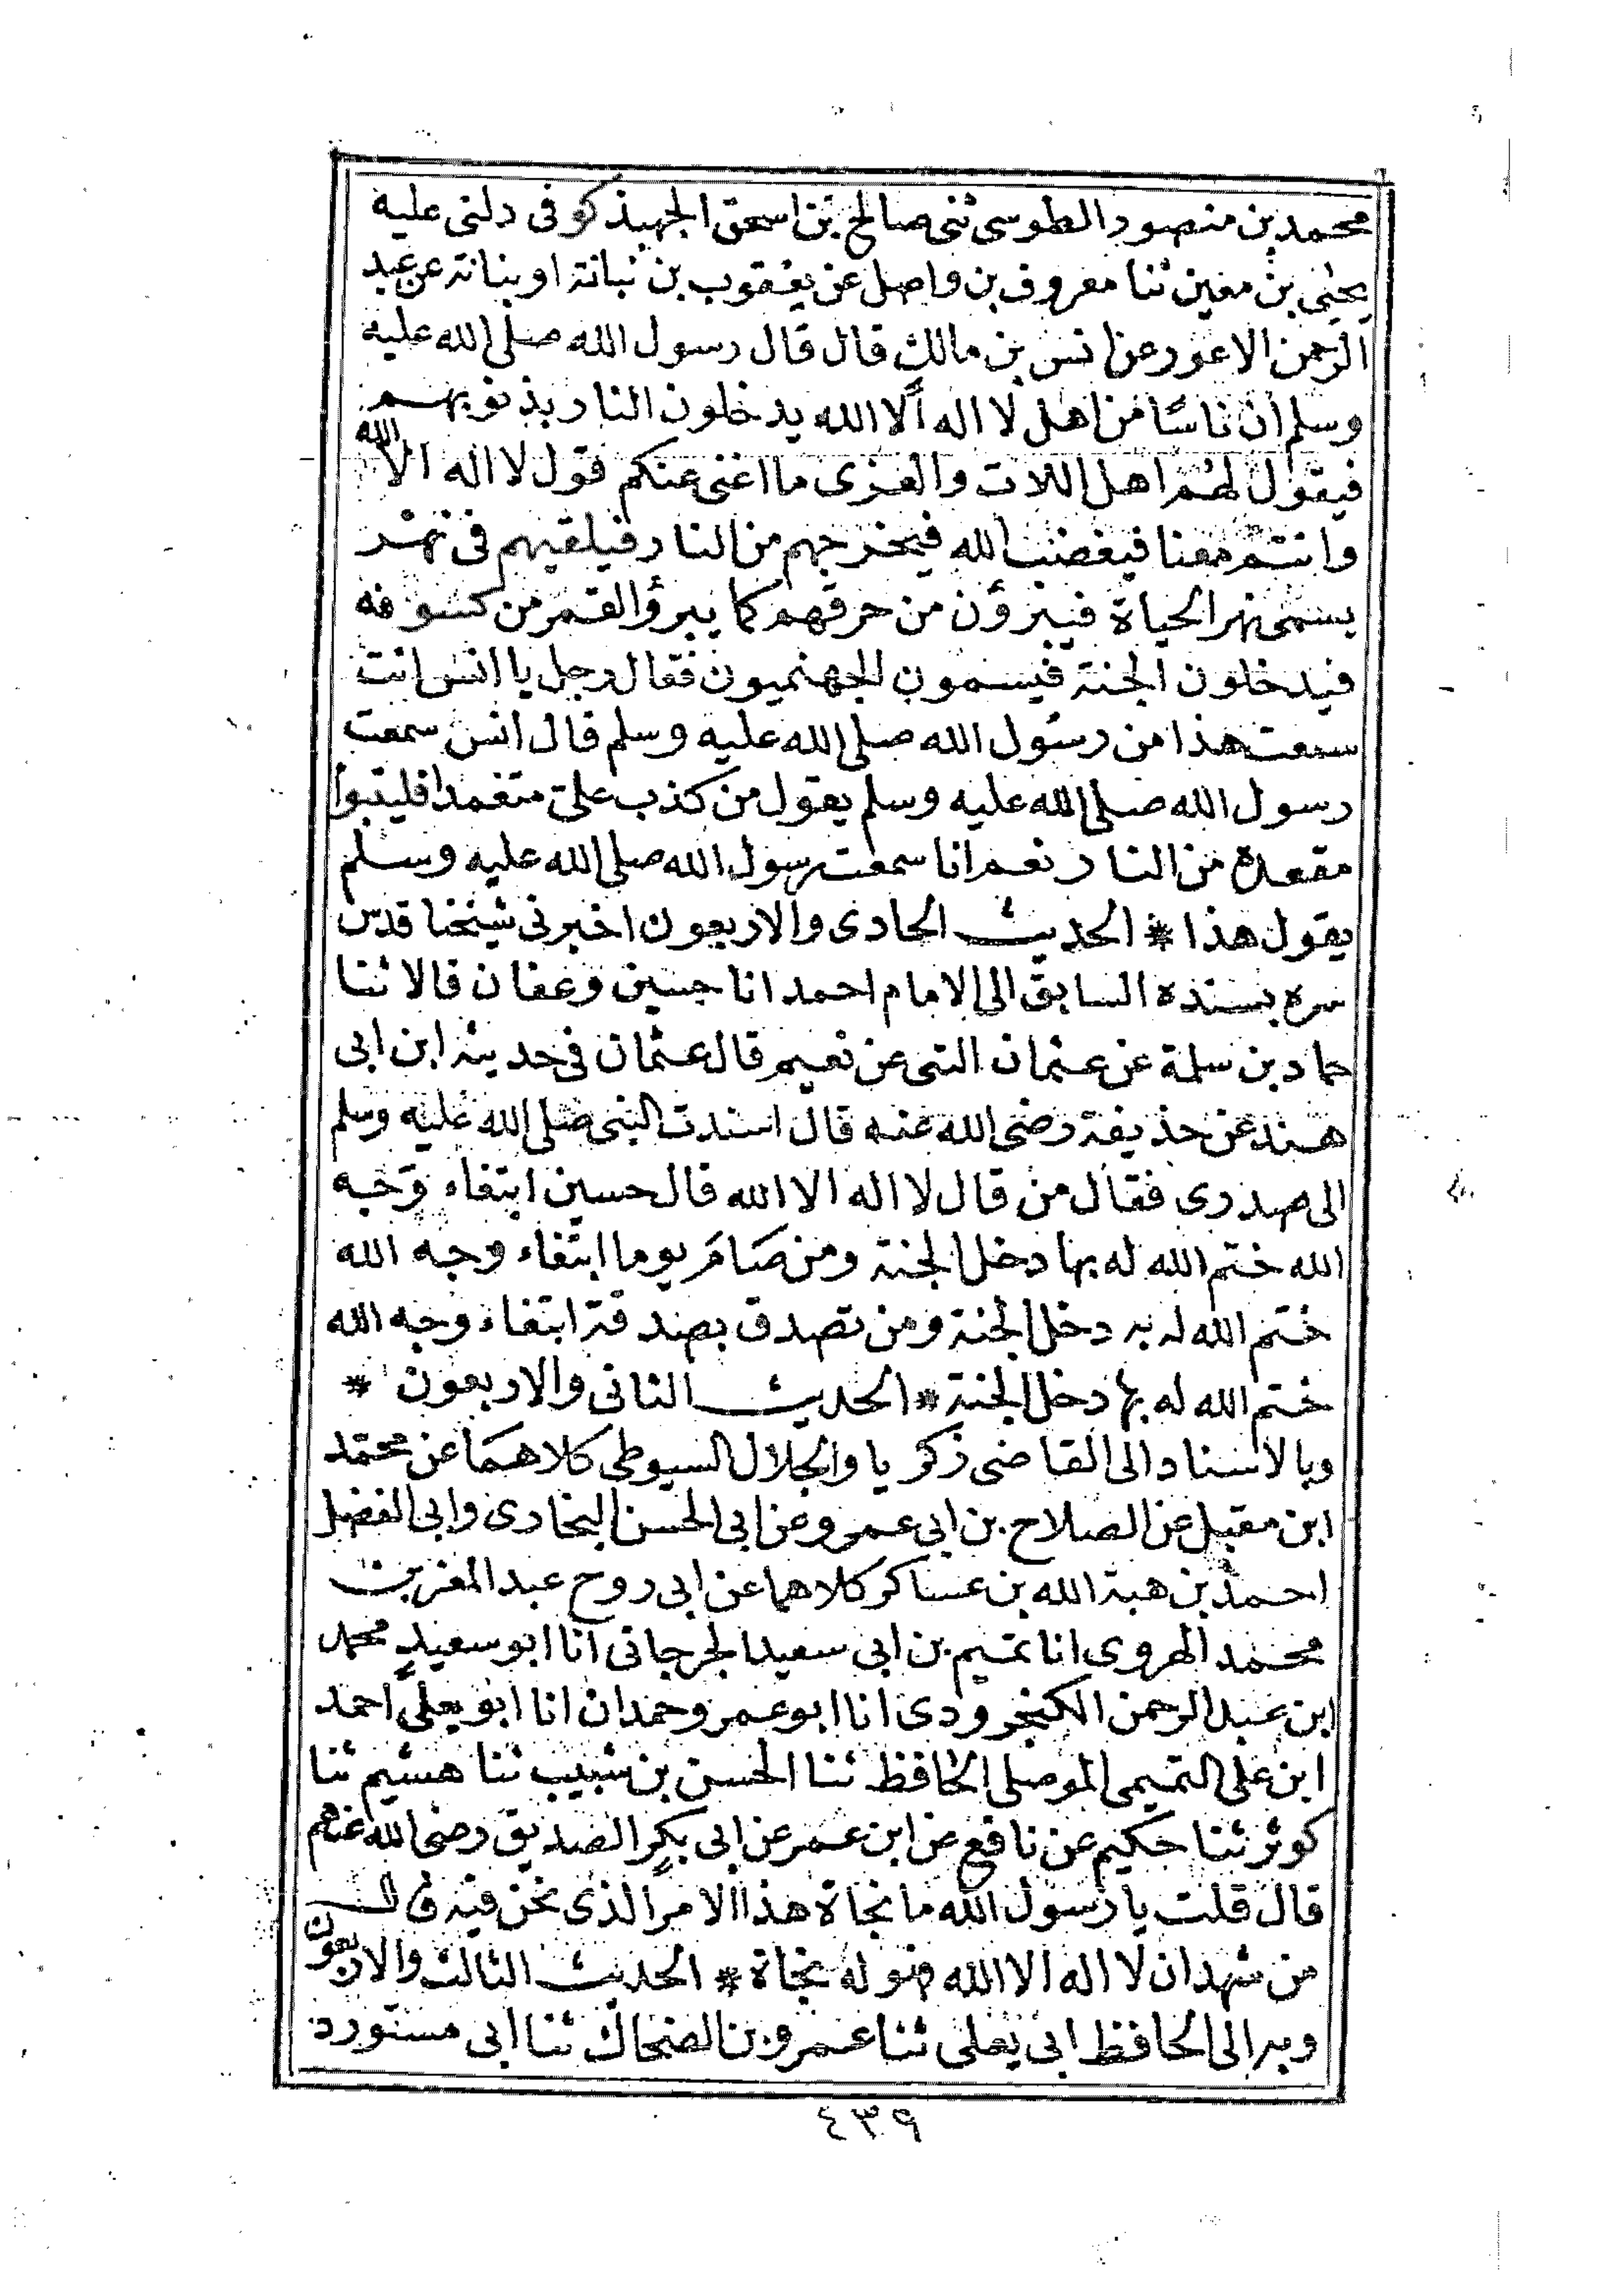 محمد بن منصور الطوسى ثنى صالح بن اسحق الجهبذ كوفى دلنى عليه
يحيى بن معين ثنا معروف بن واصل عن يعقوب بن نباتة او بنانة عن عبد
الرحمن الاعور عن انس بن مالك قال قال رسول الله صلى الله عليه
وسلم ان ناسًا من اهل لا اله الا الله يدخلون النار بذنوبهم
فيقول لهم اهل اللات والعزى ما اغنى عنكم قول لا اله الا الله
وانتم معنا فيغضب الله فيخرجهم من النار فيلقيهم فى نهر
يسمى نهر الحياة فيبرؤن من حرقهم كما يبرؤ القمر من كسوفه
فيدخلون الجنة فيسمون الجهنميون فقال رجل يا انس انت
سمعت هذا من رسول الله صلى الله عليه وسلم قال انس سمعت
رسول الله صلى الله عليه وسلم يقول من كذب على متعمدا فليتبوأ
مقعده من النار نعم انا سمعت رسول الله صلى الله عليه وسلم
يقول هذا * الحديث الحادى والاربعون اخبرنى شيخنا قدس
سره بسنده السابق الى الامام احمد انا حسين وعفان قالا ثنا
حماد بن سلمة عن عثمان التى عن نعيم قال عثمان فى حديثه ابن ابى
هند عن حذيفة رضى الله عنه قال اسندت النبى صلى الله عليه وسلم
الى صدرى فقال من قال لا اله الا الله قال حسين ابتغاء وجه
الله ختم الله له بها دخل الجنة ومن صَامَ يوما ابتغاء وجه الله
ختم الله له به دخل الجنة ومن تصدق بصدقة ابتغاء وجه الله
ختم الله له بها دخل الجنة * الحديث الثانى والاربعون *
وبالاسناد الى القاضى زكريا والجلال السيوطى كلاهما عن محمد
ابن مقبل عن الصلاح بن ابى عمرو عن ابى الحسن البخارى وابى الفضل
احمد بن هبة الله بن عساكر كلاهما عن ابى روح عبد المعز بن
محمد الهروى انا تميم بن ابى سعيد الجرجانى انا ابو سعيد محمد
ابن عبد الرحمن الكنجرودى انا ابو عمرو حمدان انا ابو يعلى احمد
ابن على التميمى الموصلى الحافظ ثنا الحسن بن شبيب ثنا هشيم ثنا
كوثر ثنا حكيم عن نافع عن ابن عمر عن ابى بكر الصديق رضى الله عنهم
قال قلت يا رسول الله ما نجاة هذا الامر الذى نحن فيه قال
من شهد ان لا اله الا الله فهو له نجاة * الحديث الثالث والاربعون
وبه الى الحافظ ابى يعلى ثنا عمرو بن الضحاك ثنا ابى مستورد
٤٣٩